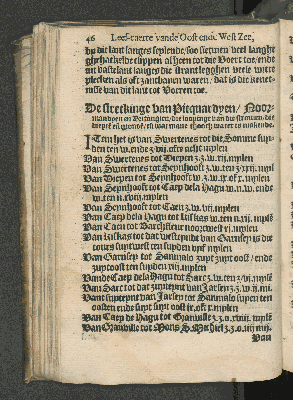 46 Lees-caerte vande Oost ende West Zee,
by dit lant langes seylende/ soo sietmen veel langhe
ghehackelde clippen al heen tot die Voert toe/ ende
int vastelant langes die strant legghen veele witte
plecken als oft zantbaren waren/ dat is die kenne-
nisse van dit lant tot Voeren toe.
De streckinge van Picquardyen/ Noor-
mandyen en Bertangien/ die
diepte en gront/ en wat mane t hooch water is makende.
ITem het is van Swertenes tot die Somme suy-
den ten w. ende z. vij. ofte acht mylen
Van Swertenes tot Diepen z.z.w. rij. mylen
Van Swertenes tot Seynhooft z.w. ten z. mylen
Van Diepen tot Seynhooft w. z. w. mylen
Van Seynhooft tot Caep dela Hagu w.n.w. ende
w. ten n. mylen
Van Seynhooft tot Caen z.w. vij. mylen
Van Caep dela Hagu tot w. ten n. mylen
Van Caen tot Barchsleur noortwest rj. mylen
Van tot dat westeynde van Garnsey is die
cours suytwest ten suyden vijf mylen
Van Garnsey tot Sanmalo suyt suyt oost/ ende
suytoost ten suyden mylen
Vande Caep dela Hagu tot Sarc z.w. ten z. vj. mylen
Van Sarc tot dat suyteynt van Jarsey z.z.w. iij. m.
Vant suyteynt van Jarsey tot Sanmalo suyen ten
oosten ende suyt suyt oost ix. oft x. mylen
Van Caep de Hagu tot Granville z.z.o. xviij. mylen
Van Granville tot Mons S. Michiel z.z.o. iiij mij.
Van